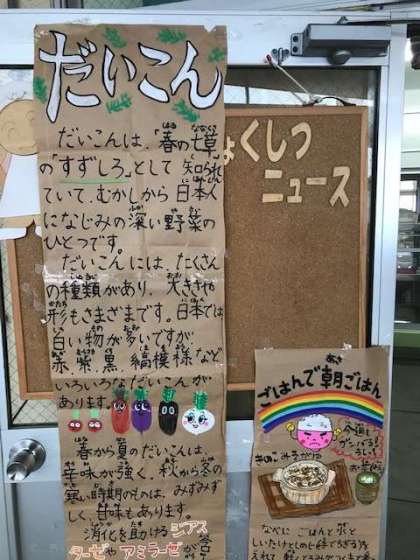 だいこん
だいこんは、「春の七草」
の「すずしろ」として 知られ
ていて、むかしから 日本人
になじみの深い野菜の
ひとつです。
だいこんには、たくさん
の種類があり、大きさや
形もさまざまです。日本では
白い物が多いですが
赤、紫、黒、縞模様など
いろいろなだいこんが
あります。
春から夏のだいこんは、
辛味が強く、秋から冬の
寒い時期のものは、みずみず
しく、甘味もあります。
消化を助けるジアス
ターゼ・アミラーゼ
くしつ
ニュース
ごはんで朝ごはん
今週も
なべに ごはんと 水と